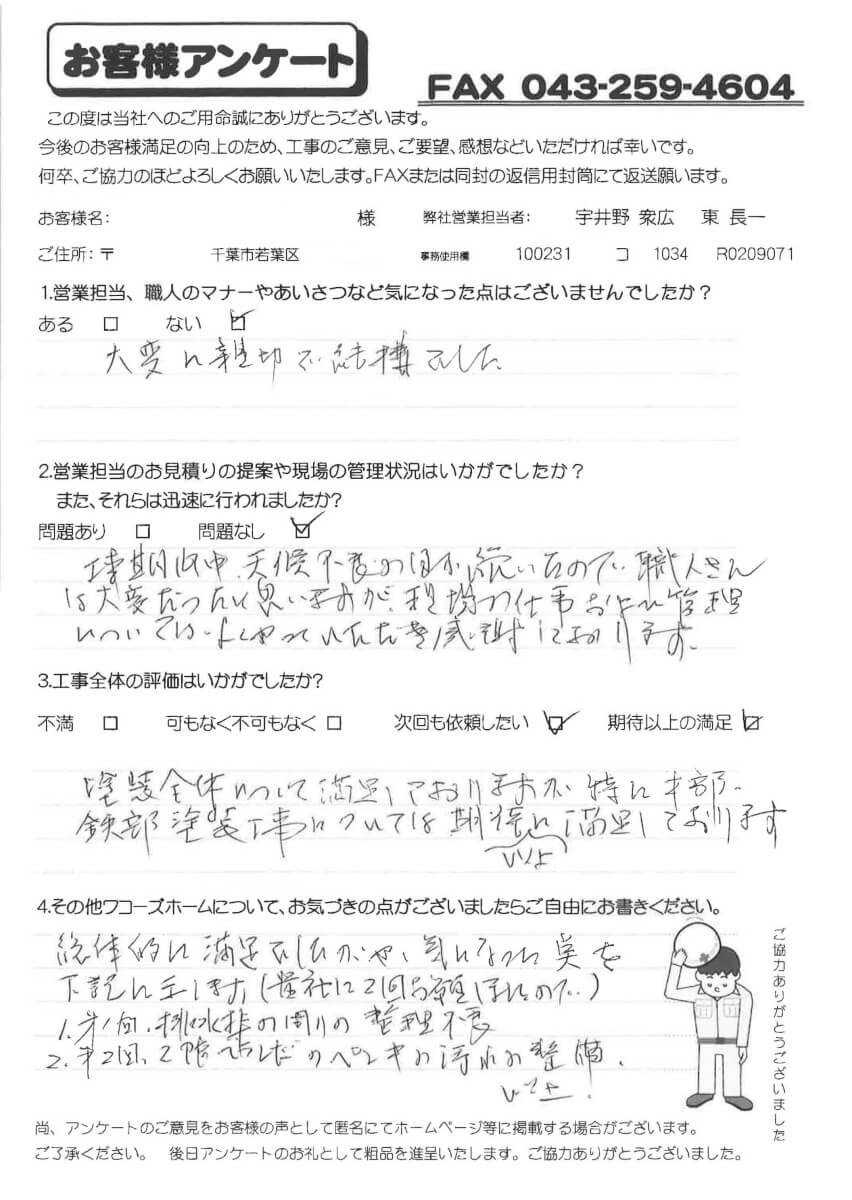 お客様アンケート
FAX 043-259-4604
この度は当社へのご用命誠にありがとうございます。
今後のお客様満足の向上のため、工事のご意見、ご要望、感想などいただければ幸いです。
何卒、ご協力のほどよろしくお願いいたします。FAXまたは同封の返信用封筒にて返送願います。
お客様名: 様 弊社営業担当者: 宇井野 衆広 東 長一
ご住所:〒 千葉市若葉区 事務使用欄 100231 コ 1034 R0209071
1.営業担当、職人のマナーやあいさつなど気になった点はございませんでしたか?
ある □ ない ☑
大変に親切で結構でした
2.営業担当のお見積りの提案や現場の管理状況はいかがでしたか?
また、それらは迅速に行われましたか?
問題あり □ 問題なし ☑
工事期間中、天候不良の日が続いたので、職人さん
は大変だったと思いますが、現場の仕事および管理
については、よくやっていただき感謝しております。
3.工事全体の評価はいかがでしたか?
不満 □ 可もなく不可もなく □ 次回も依頼したい ☑ 期待以上の満足 ☑
塗装全体について満足しておりますが 特に木部、
鉄部塗装工事については期待に満足しております
4.その他ワコーズホームについて、お気づきの点がございましたらご自由にお書きください。
総体的に満足でしたが、気になった点を
下記に (貴社に2回お願いしたので)
1. 第1回、排水 の周りの整理不良
2. 第2回、 のペンキの汚れの整備、
ご協力ありがとうございました
尚、アンケートのご意見をお客様の声として匿名にてホームページ等に掲載する場合がございます。
ご了承ください。 後日アンケートのお礼として粗品を進呈いたします。ご協力ありがとうございました。